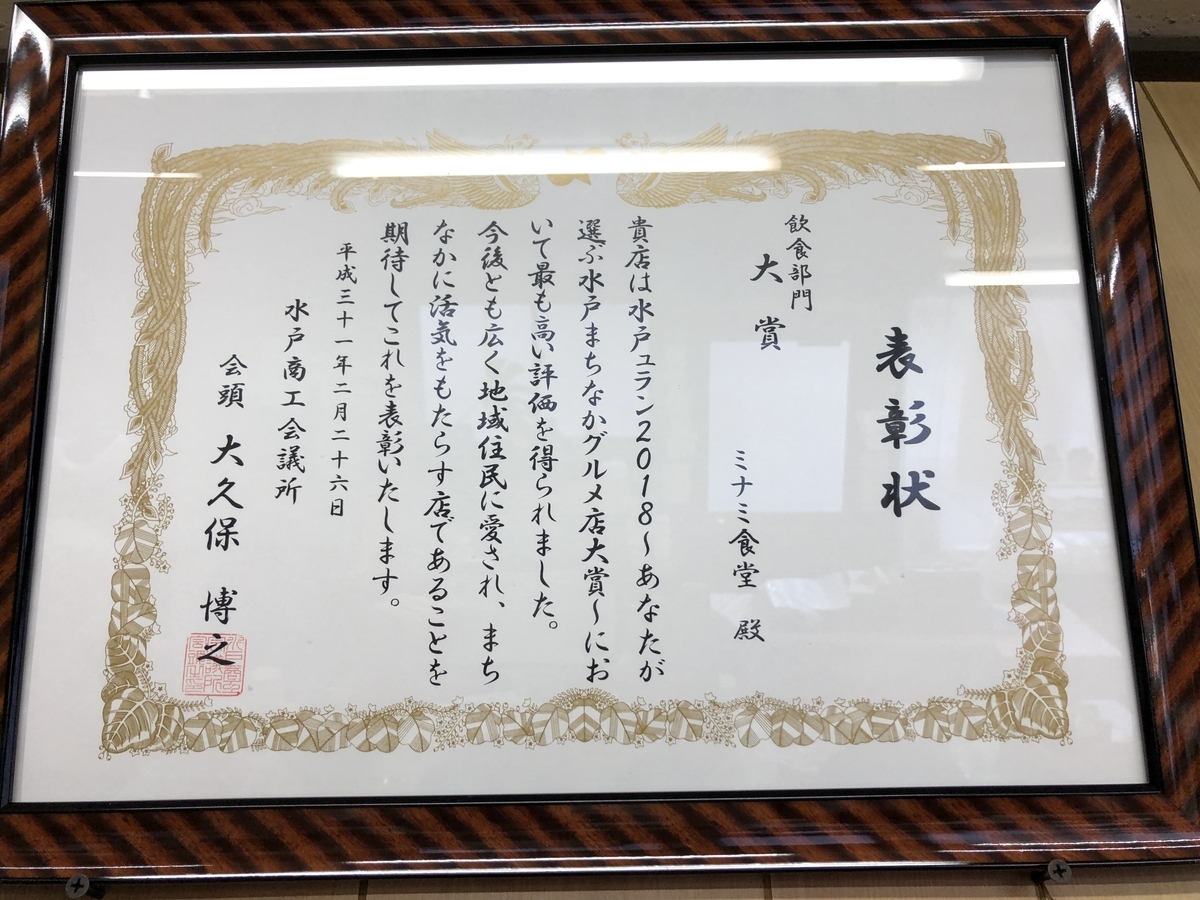 表彰状
飲食部門
大賞
ミナミ食堂 殿
貴店は水戸ュラン2018～あなたが
選ぶ水戸まちなかグルメ店大賞～にお
いて最も高い評価を得られました。
今後とも広く地域住民に愛され、まち
なかに活気をもたらす店であることを
期待してこれを表彰いたします。
平成三十一年二月二十六日
水戸商工会議所
会頭 大久保 博之